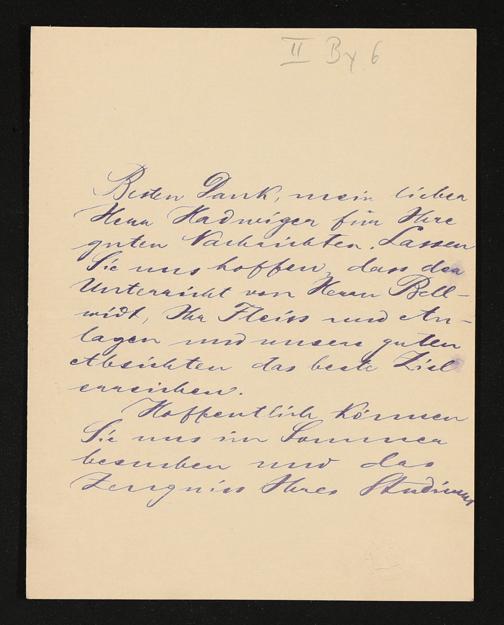 II By 6
Besten Dank, mein lieber
Herr Hadwiger für Ihre
guten Nachrichten. Lassen
Sie uns hoffen, dass der
Unterricht von Herrn Bell-
widt, Ihr Fleiss und An-
lagen und unsere guten
Absichten das beste Ziel
erreichen.
Hoffentlich können
Sie uns im Sommer
besuchen und das
Zeugniss Ihres Studiums